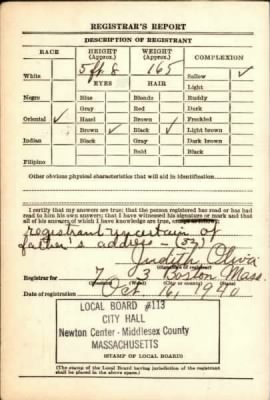 REGISTRAR'S REPORT
DESCRIPTION OF REGISTRANT
RACE HEIGHT (Approx.) WEIGHT (Approx.) COMPLEXION
5 ft 8 165
White EYES HAIR Sallow ✓
Light
Negro Blue Blonde Ruddy
Gray Red Dark
Oriental ✓ Hazel Brown Freckled
Brown ✓ Black ✓ Light brown
Indian Black Gray Dark brown
Bald Black
Filipino
Other obvious physical characteristics that will aid in identification
I certify that my answers are true; that the person registered has read or has had
read to him his own answers; that I have witnessed his signature or mark and that
all of his answers of which I have knowledge are true, except as follows:
registrant uncertain of
father's address – (32)
Judith Oliva
(Signature of registrar)
Registrar for 7 3 Boston Mass.
(Precinct) (Ward) (City or county) (State)
Date of registration Oct. 16, 1940
LOCAL BOARD #113
CITY HALL
Newton Center - Middlesex County
MASSACHUSETTS
(STAMP OF LOCAL BOARD)
(The stamp of the Local Board having jurisdiction of the registrant
shall be placed in the above space.)